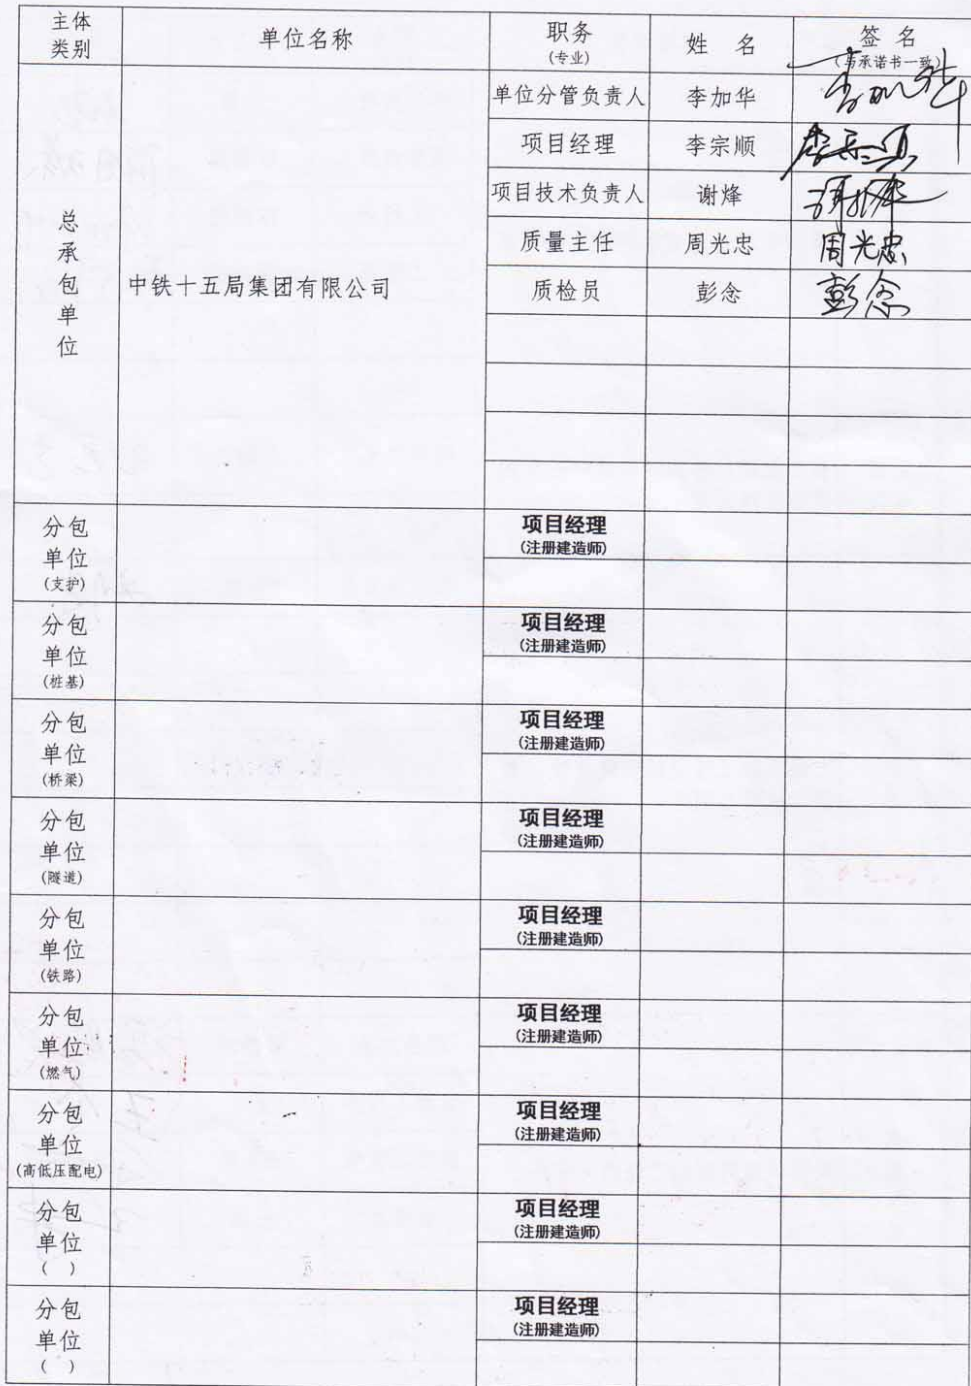 主体
类别
单位名称
职务
(专业)
姓 名
签 名
(与承诺书一致)
总
承
包
单
位
中铁十五局集团有限公司
单位分管负责人 李加华
项目经理 李宗顺
项目技术负责人 谢烽
质量主任 周光忠 周光忠
质检员 彭念 彭念
分包
单位
(支护)
项目经理
(注册建造师)
分包
单位
(桩基)
项目经理
(注册建造师)
分包
单位
(桥梁)
项目经理
(注册建造师)
分包
单位
(隧道)
项目经理
(注册建造师)
分包
单位
(铁路)
项目经理
(注册建造师)
分包
单位
(燃气)
项目经理
(注册建造师)
分包
单位
(高低压配电)
项目经理
(注册建造师)
分包
单位
( )
项目经理
(注册建造师)
分包
单位
( )
项目经理
(注册建造师)